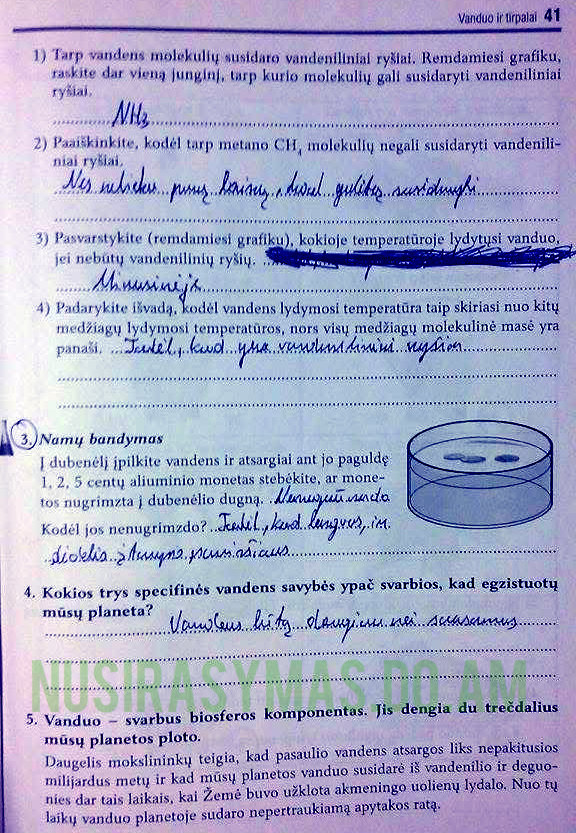 Vanduo ir tirpalai 41
1) Tarp vandens molekulių susidaro vandeniliniai ryšiai. Remdamiesi grafiku,
raskite dar vieną junginį, tarp kurio molekulių gali susidaryti vandeniliniai
ryšiai.
NH3
2) Paaiškinkite, kodėl tarp metano CH4 molekulių negali susidaryti vandenili-
niai ryšiai.
Nes nelieka porų laisvų, kad galėtų susidaryti
3) Pasvarstykite (remdamiesi grafiku), kokioje temperatūroje lydytųsi vanduo,
jei nebūtų vandenilinių ryšių.
Minusinėje
4) Padarykite išvadą, kodėl vandens lydymosi temperatūra taip skiriasi nuo kitų
medžiagų lydymosi temperatūros, nors visų medžiagų molekulinė masė yra
panaši. Todėl, kad yra vandenilinini ryšiai
3. Namų bandymas
Į dubenėlį įpilkite vandens ir atsargiai ant jo paguldę
1, 2, 5 centų aliuminio monetas stebėkite, ar mone-
tos nugrimzta į dubenėlio dugną. Nenugrimzdo
Kodėl jos nenugrimzdo? Todėl, kad lengvos, ir
didelis įtempis paviršiaus
4. Kokios trys specifinės vandens savybės ypač svarbios, kad egzistuotų
mūsų planeta?
Vandens kitų daugiau nei sausumos
NUSIRASYMAS.DO.AM
5. Vanduo – svarbus biosferos komponentas. Jis dengia du trečdalius
mūsų planetos ploto.
Daugelis mokslininkų teigia, kad pasaulio vandens atsargos liks nepakitusios
milijardus metų ir kad mūsų planetos vanduo susidarė iš vandenilio ir deguo-
nies dar tais laikais, kai Žemė buvo užklota akmeningo uolienų lydalo. Nuo tų
laikų vanduo planetoje sudaro nepertraukiamą apytakos ratą.